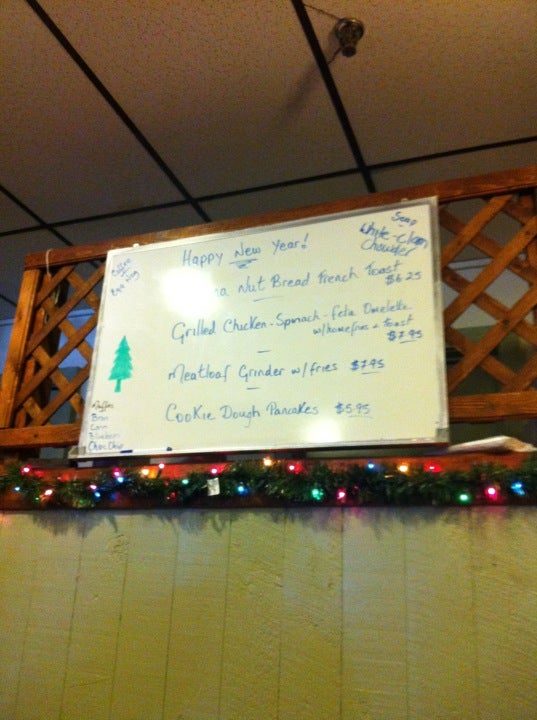 Happy New Year!
Soup
White-Clam
Chowder
Coffee
Egg nog
Nut Bread French Toast
$6.25
Grilled Chicken-Spinach-Feta Omelette
w/homefries + Toast
$7.95
Meatloaf Grinder w/fries $7.95
Cookie Dough Pancakes $5.95
Muffins
Bran
Corn
Blueberry
Choc Chip